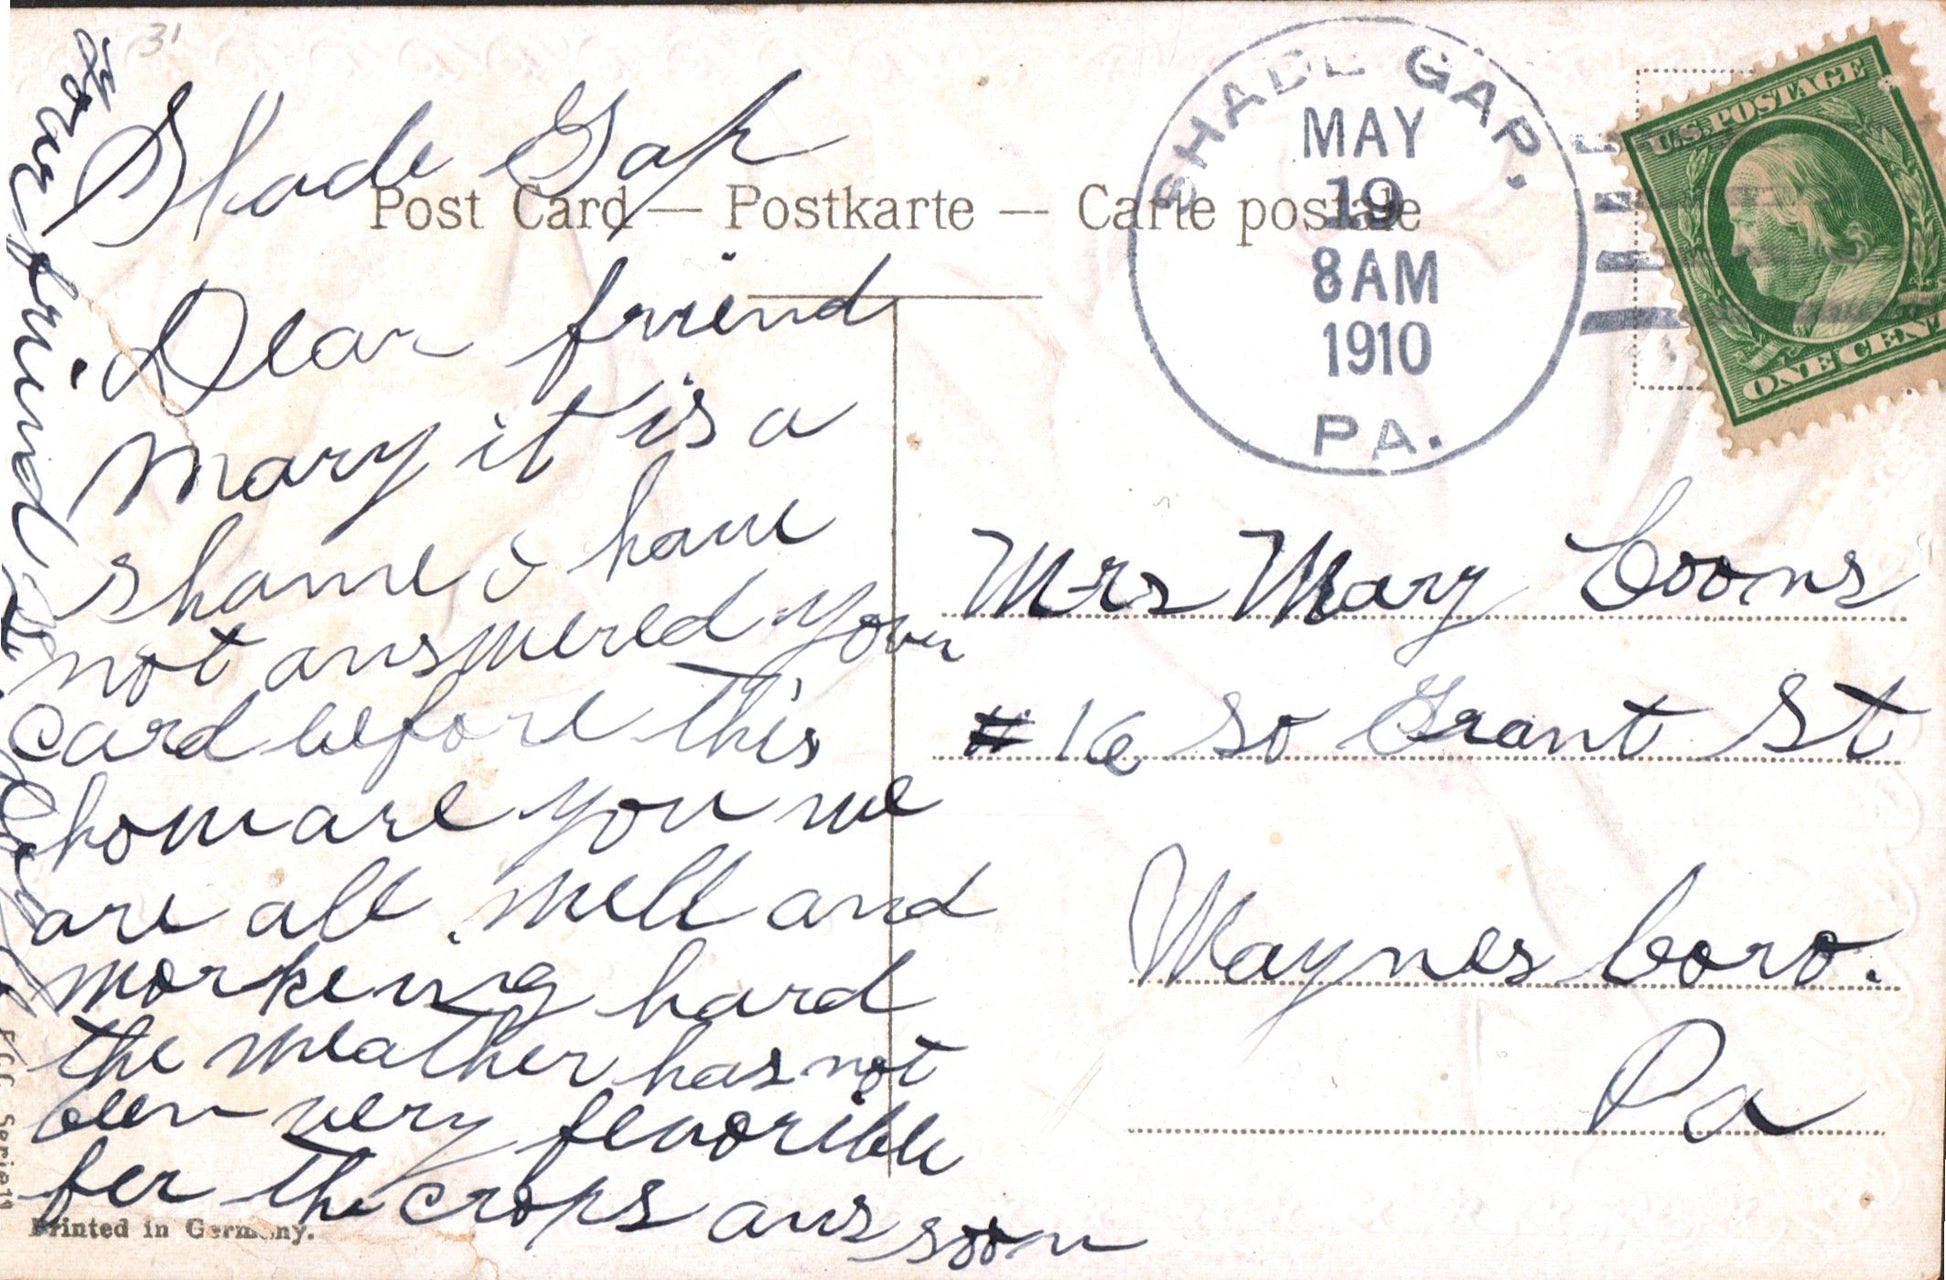 31
Shade Gap
Post Card — Postkarte — Carte postale
SHADE GAP.
MAY
19
8AM
1910
PA.
U.S. POSTAGE
ONE CENT
Dear friend
Mary it is a
shame i have
not answered your
card before this
how are you we
are all well and
workeing hard
the weather has not
been very fevorible
fer the crops ans soon
your friend
Mrs Mary Coons
# 16 So Grant St
Waynesboro.
Pa
Serie
Printed in Germany.